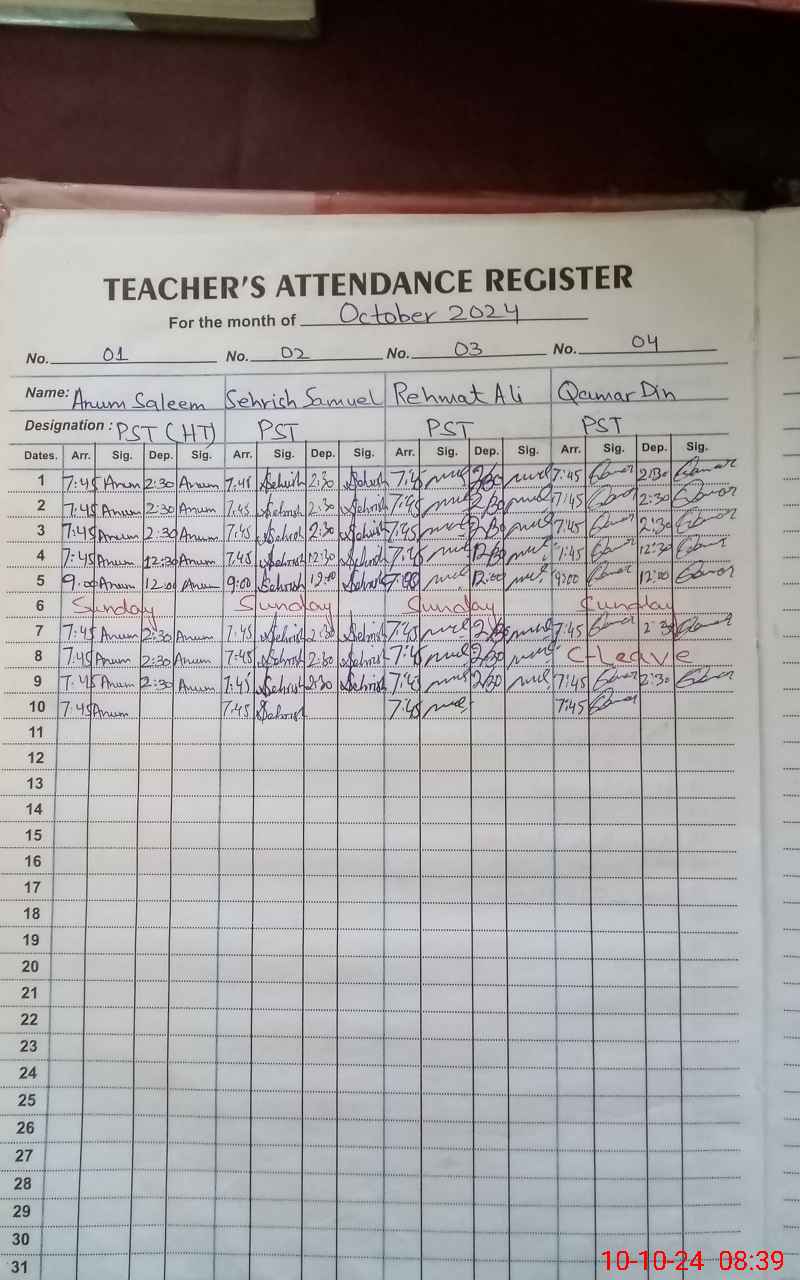 TEACHER'S ATTENDANCE REGISTER
For the month of October 2024
No. 01 No. 02 No. 03 No. 04
Name: Anum Saleem Sehrish Samuel Rehmat Ali Qamar Din
Designation : PST (HT) PST PST PST
Dates. Arr. Sig. Dep. Sig. Arr. Sig. Dep. Sig. Arr. Sig. Dep. Sig. Arr. Sig. Dep. Sig.
1 7:45 Anum 2:30 Anum 7:45 Sehrish 2:30 Sehrish 7:45 2:30 7:45 Qamar 2:30 Qamar
2 7:45 Anum 2:30 Anum 7:45 Sehrish 2:30 Sehrish 7:45 2:30 7:45 Qamar 2:30 Qamar
3 7:45 Anum 2:30 Anum 7:45 Sehrish 2:30 Sehrish 7:45 2:30 7:45 Qamar 2:30 Qamar
4 7:45 Anum 12:30 Anum 7:45 Sehrish 12:30 Sehrish 7:45 12:30 7:45 Qamar 12:30 Qamar
5 9:00 Anum 12:00 Anum 9:00 Sehrish 12:00 Sehrish 12:00 9:00 Qamar 12:00 Qamar
6 Sunday Sunday Sunday Sunday
7 7:45 Anum 2:30 Anum 7:45 Sehrish 2:30 Sehrish 7:45 2:30 7:45 Qamar 2:30 Qamar
8 7:45 Anum 2:30 Anum 7:45 Sehrish 2:30 Sehrish 7:45 2:30 C-Leave
9 7:45 Anum 2:30 Anum 7:45 Sehrish 2:30 Sehrish 7:45 2:30 7:45 Qamar 2:30 Qamar
10 7:45 Anum 7:45 Sehrish 7:45 7:45 Qamar
11
12
13
14
15
16
17
18
19
20
21
22
23
24
25
26
27
28
29
30
31
10-10-24 08:39